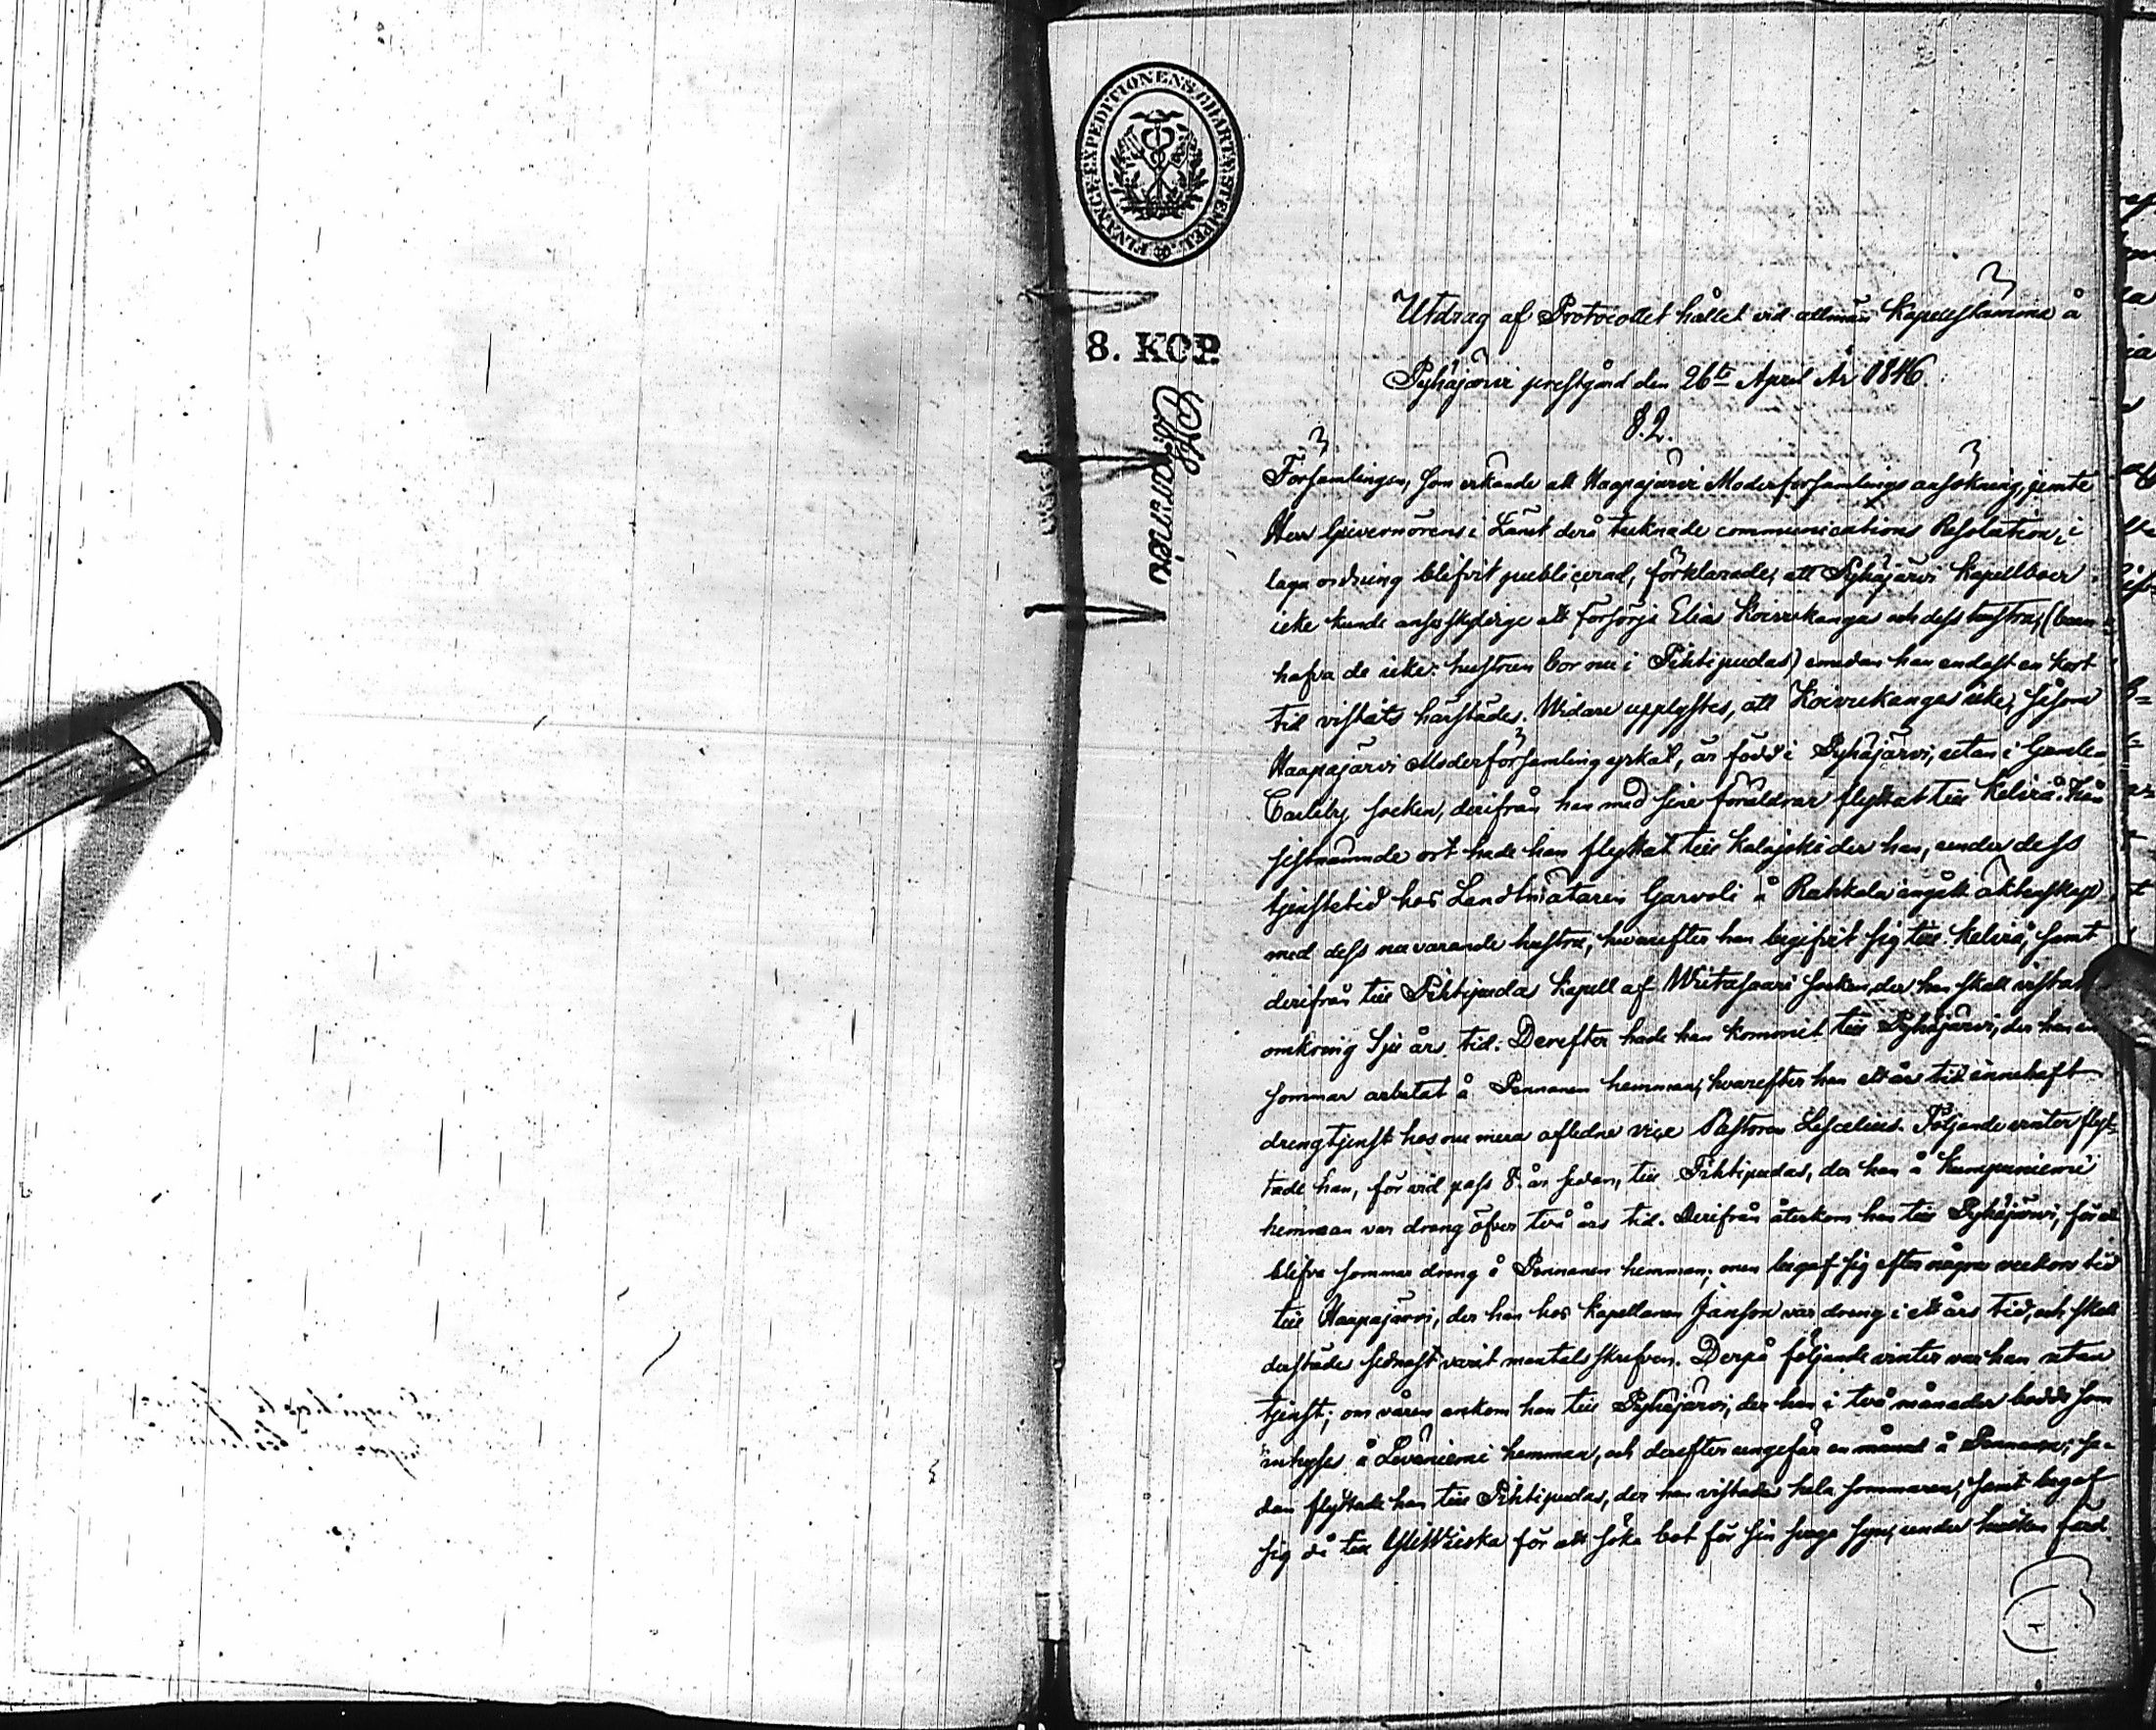 FINANCE-EXPEDITIONENS CHARTÆ STEMPEL.
8. KOP.
Utdrag af Protocollet hållet vid allmän Kapellstämma å
Pyhäjärvi prestgård den 26te April År 1846.
§. 2.
Församlingen, som erkände att Haapajärvi Moderförsamlings ansökning, jemte
Herr Guvernörens i Länet derå tecknade communications Resolution, i
laga ordning blifvit publicerad, förklarade, att Pyhäjärvi Kapellboer
icke kunde anses skyldige att försörja Elias Koivukangas och dess hustra, (barn
hafva de icke: hustrun bor nu i Pihtipudas) emedan han endast en kort
tid vistats härstädes. Widare upplystes, att Koivukangas icke, såsom
Haapajärvi Moderförsamling yrkat, är född i Pyhäjärvi, utan i Gamla-
Carleby socken, derifrån han med sina föräldrar flyttat till Kelviå. Från
sistnämnde ort hade han flyttat till Kalajoki der han, under dess
tjenstetid hos Landtmätaren Garvoli å Rahkola ingått äktenskap
med dess nuvarande hustru, hvarefter han begifvit sig till Kelviå, samt
derifrån till Pihtipudas Kapell af Wiitasaari socken, der han skall vistats
omkring sju års tid. Derefter hade han kommit till Pyhäjärvi, der han en
sommar arbetat å Pennanen hemman, hvarefter han ett års tid innehaft
drengtjenst hos nu mera aflidne vice Pastoren Lescelius. Följande vinter flyt-
tade han, för vid pass 8. år sedan, till Pihtipudas, der han å Kumpuniemi
hemman var dreng öfver två års tid. Derifrån återkom han till Pyhäjärvi, för att
blifva sommar dreng å Pennanen hemman; men begaf sig efter några veckors tid
till Haapajärvi, der han hos Kapellanen Janson var dreng i ett års tid, och skall
derstädes sednast varit mantals skrefven. Derpå följande vinter var han utan
tjenst; om våren ankom han till Pyhäjärvi, der han i två månader bodde som
inhyses å Leväniemi hemman, och derefter ungefär en månad å Pennanen; se-
dan flyttade han till Pihtipudas, der han vistades hela sommaren, samt begaf
sig då till YliWieska för att söka bot för sin svaga syn, under hvilken färd
1